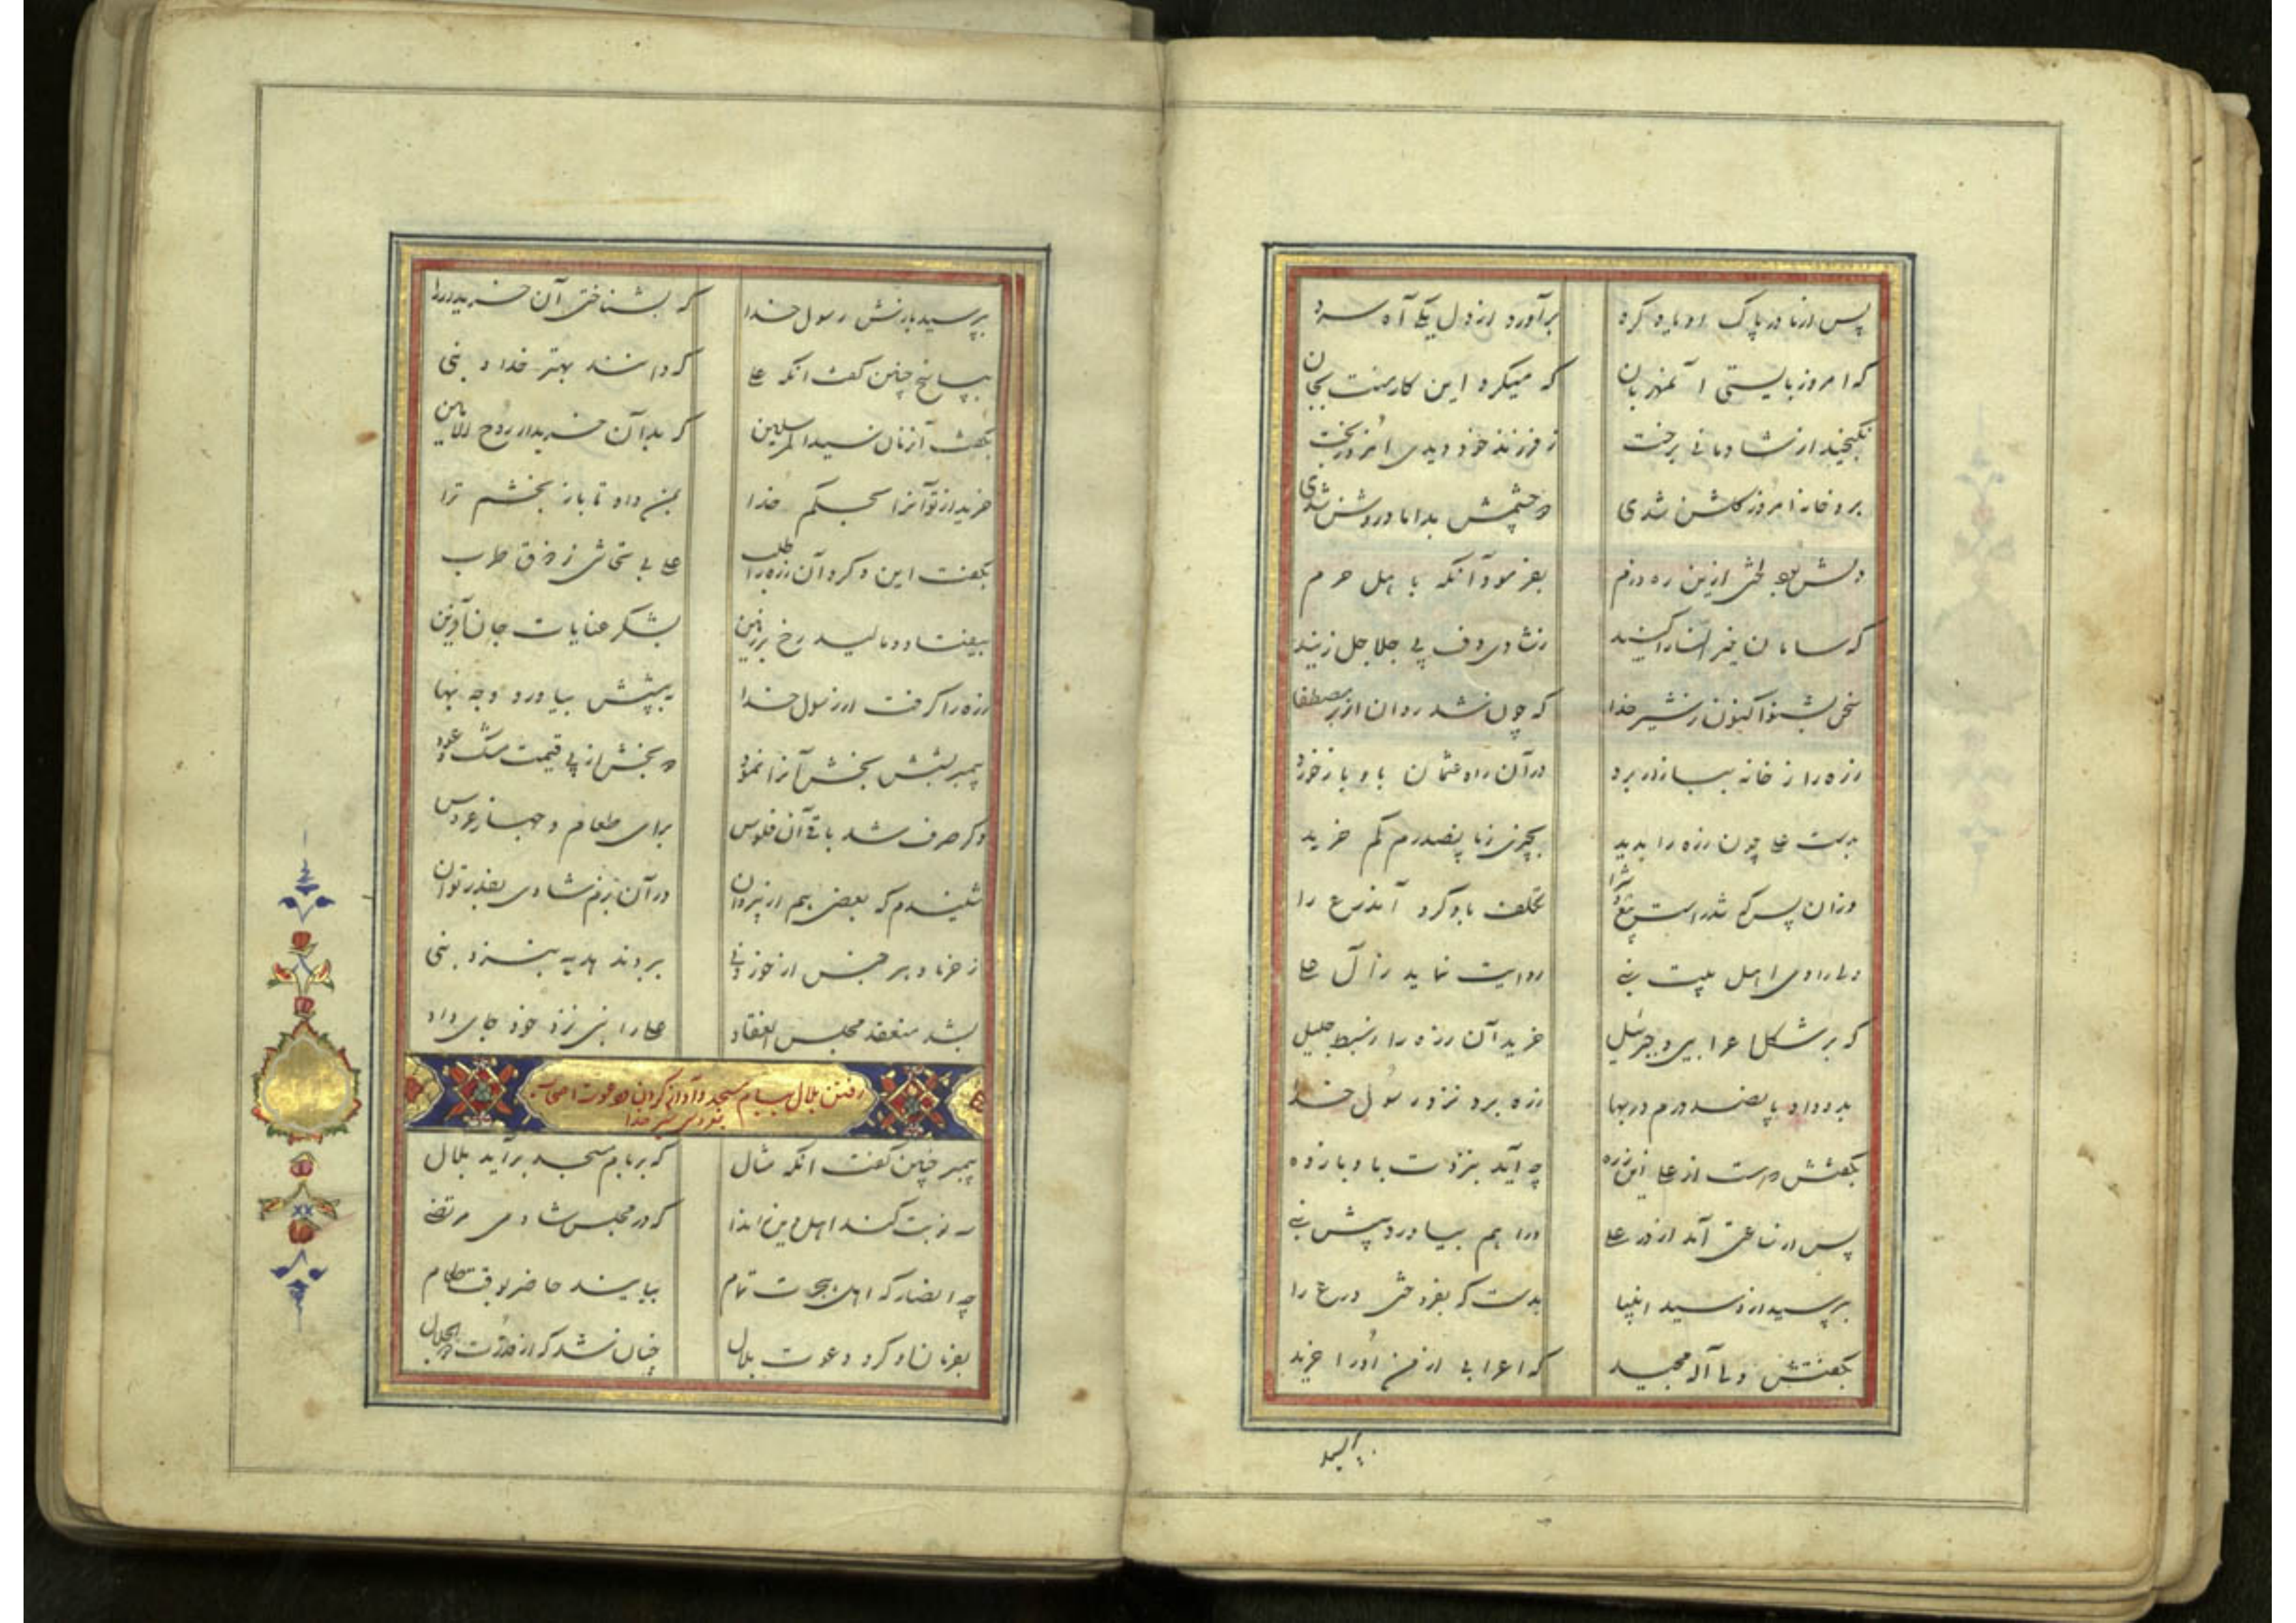 پس از مادر پاک او یاد کرد برآورد از دل یکی آه سرد
که امروز بایستی آنمهربان که میکرد این کار منت بجان
نگنجید از شادمانی برخت ز فرزند خود دیدی امروز بخت
برو خانه امروز گلشن شدی دو چشمش بداماد روشن شدی
دلش بود لختی ازین ره دژم بفرمود آنگه باهل حرم
که سامان خیرالنسا را کنید ز شادی دف بی جلاجل زنید
سخن بشنو اکنون ز شیر خدا که چون شد روان از بر مصطفا
زره را ز خانه ببازار برد در آن راه عثمان باو باز خورد
بدست علی چون زره را بدید بچیزی ز پانصد درم کم خرید
وزان پس که شد راست بیع و شرا تکلف باو کرد آندرع را
ولی راوی اهل بیت نبی روایت نماید ز آل علی
که بر شکل اعرابیی جبرئیل خرید آن زره را ز شبط جلیل
بدو داد پانصد درم در بها زره برد نزد رسول خدا
بگفتش درست از علی این زره چو آید بنزدت باو باز ده
پس از ساعتی آمد از در علی ورا هم بیاورد پیش نبی
بپرسید ازو سید انبیا بدست که بفروختی درع را
بگفتش ولی آله مجید که اعرابی از من اورا خرید
بپرسید
بپرسید بازش رسول خدا که بشناختی آن خریدار را
بپاسخ چنین گفت آنگه علی که دانند بهتر خدا و نبی
بگفت آنزمان سید المرسلین که بد آن خریدار روح الامین
خرید از تو آنرا بحکم خدا بمن داد تا باز بخشم ترا
بگفت این و کرد آن زره را طلب علی بی تحاشی ز ذوق طرب
بیفتاد و مالید رخ بر زمین بشکر عنایات جان آفرین
زره را گرفت از رسول خدا به پیشش بیاورد وجه بها
پیمبر بشش بخش آنرا نمود دو بخش از پی قیمت مشک و عود
دگر صرف شد باقی آن فلوس برای طعام و جهاز عروس
شنیدم که بعضی هم از پیروان در آن بزم شادی بقدر توان
ز خرما و هر جنس از خوردنی بردند هدیه بنزد نبی
بشد منعقد مجلس انعقاد علی را نبی نزد خود جای داد
رفتن بلال ببام مسجد و آواز کردن و دعوت اصحاب
بعروسی شیر خدا
پیمبر چنین گفت آنگه مثال که بر بام مسجد برآید بلال
سه نوبت کند اهل دین را ندا که در مجلس شادی مرتضی
چه انصار که اهل هجرت تمام بیایند حاضر بوقت طعام
بفرمان او کرد دعوت بلال چنان شد که از قدرت ذوالجلال